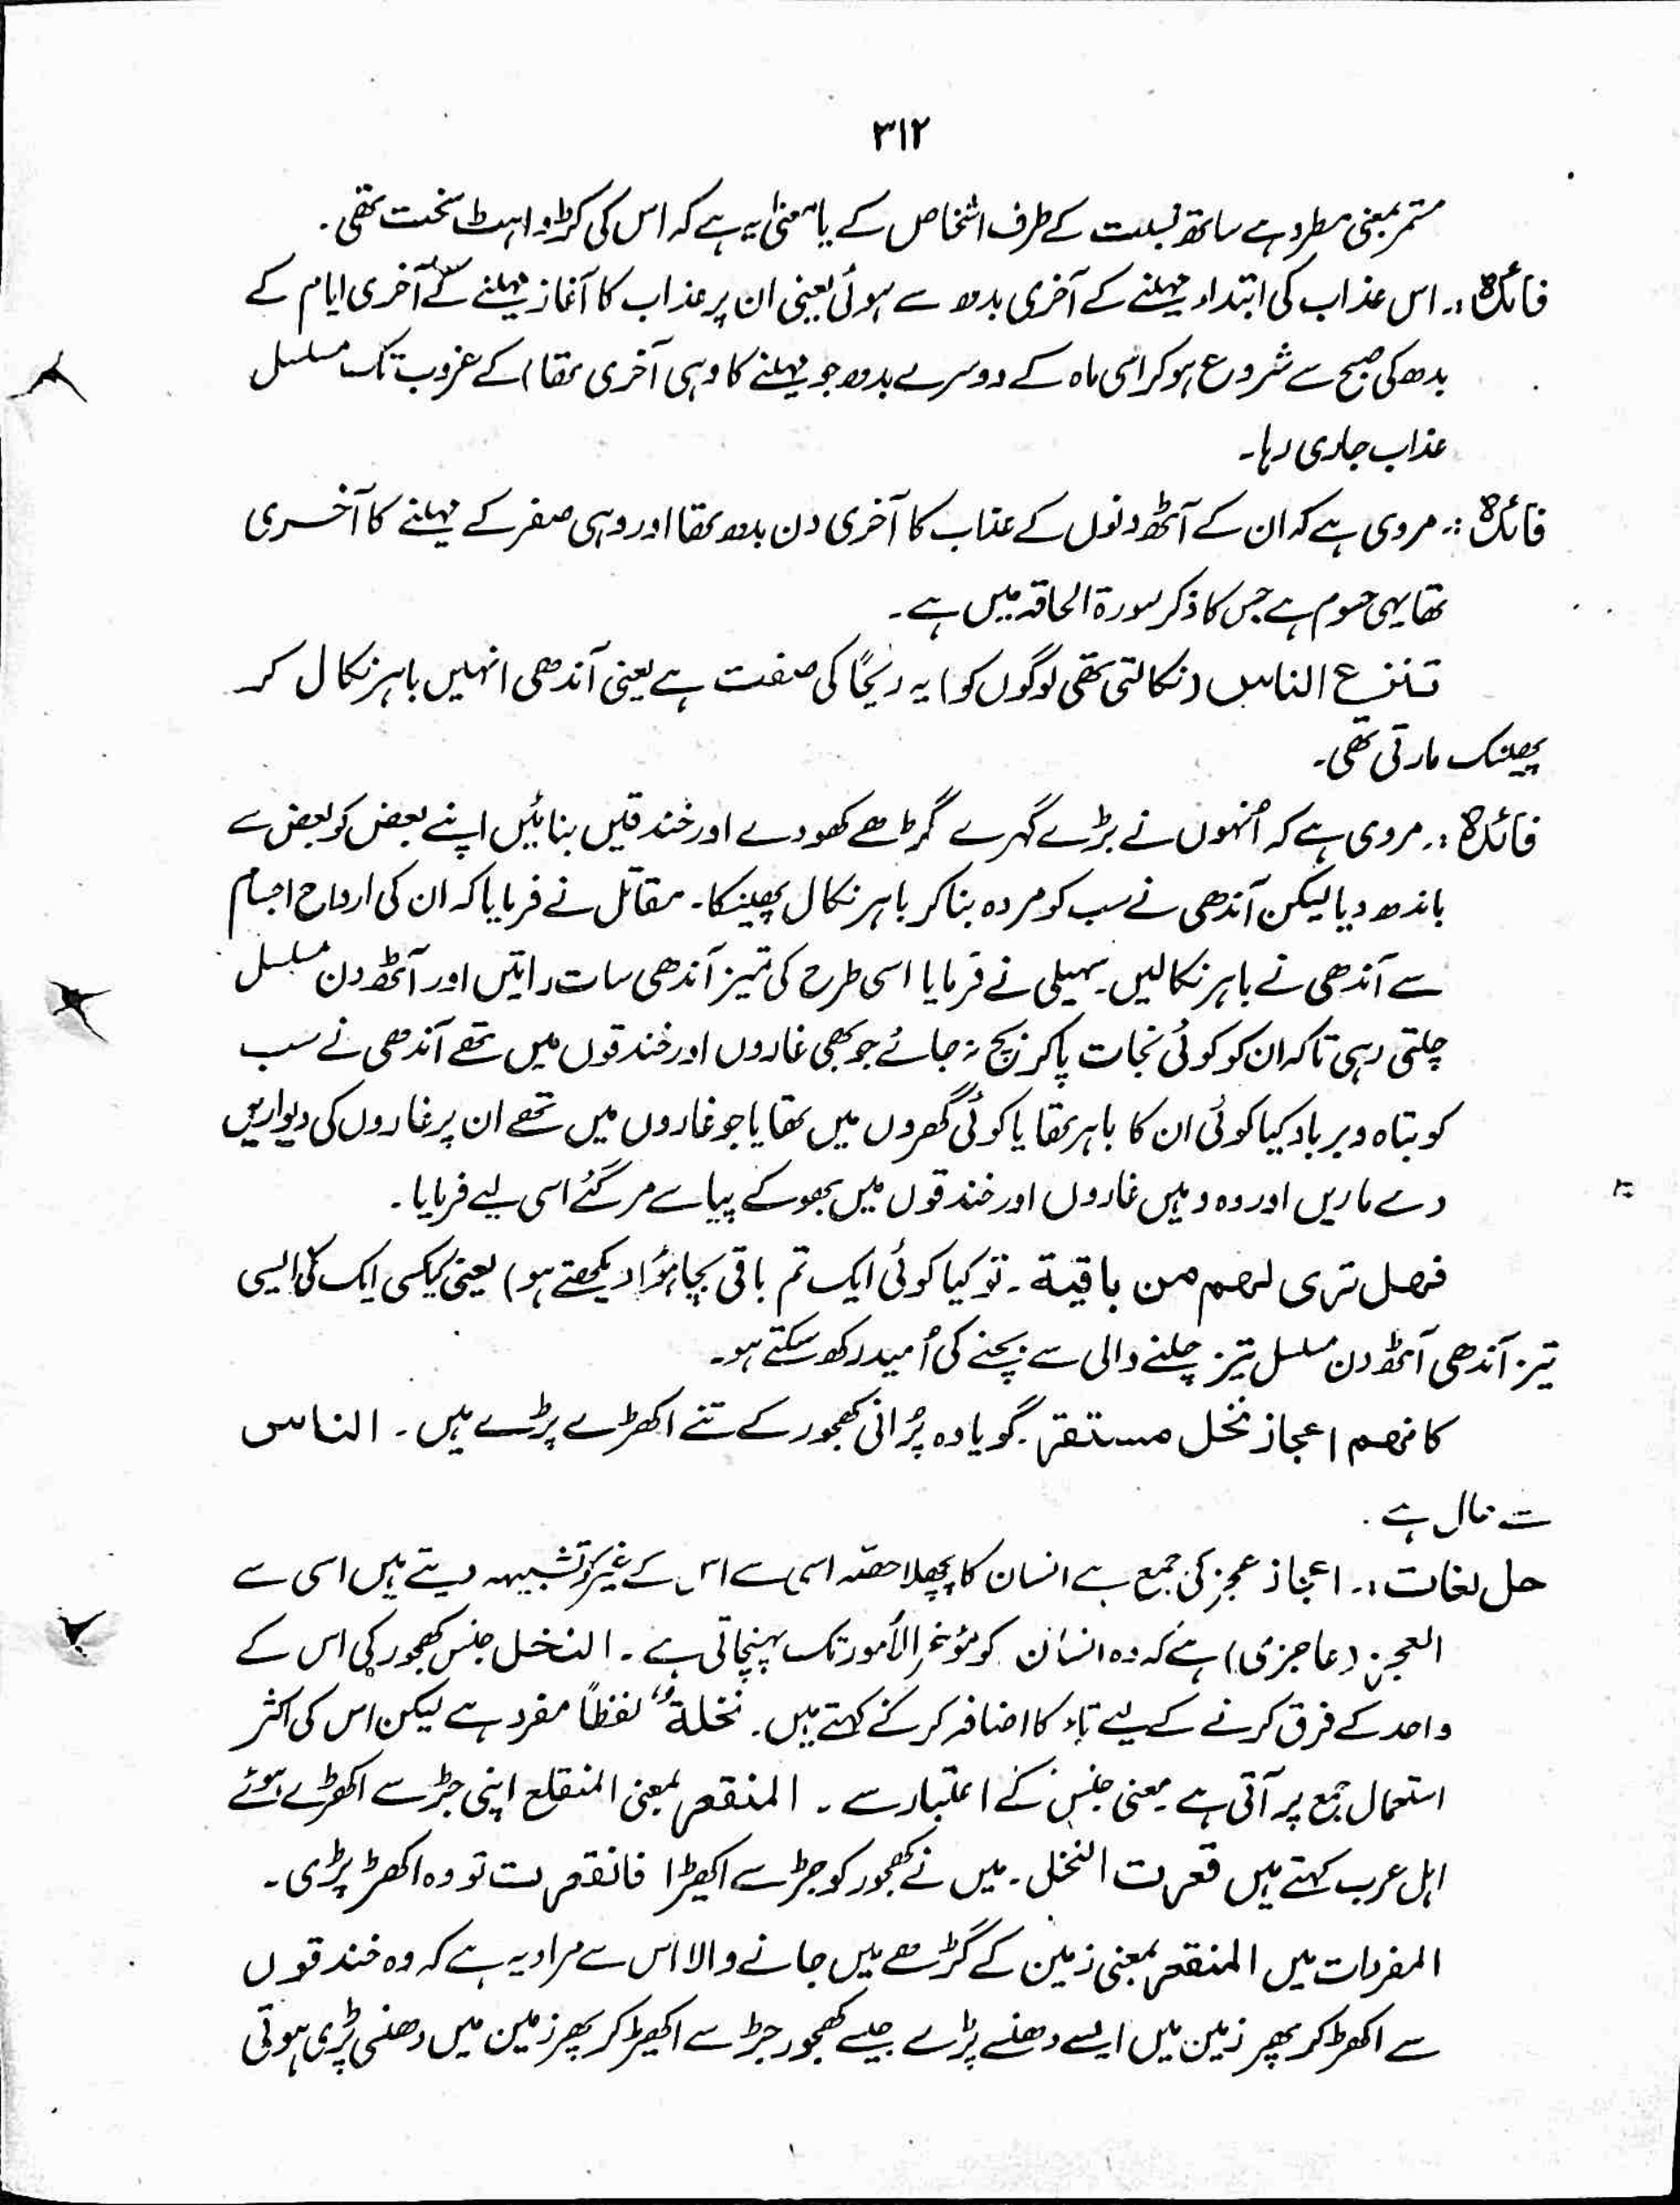 ٣١٢
مستمر بمعنی مطرد ہے ساتھ نسبت کے طرف اشخاص کے یا معنیٰ یہ ہے کہ اس کی کڑواہٹ سخت تھی ۔
فائدہ :۔ اس عذاب کی ابتداء مہینے کے آخری بدھ سے ہوئی یعنی ان پر عذاب کا آغاز مہینے کے آخری ایام کے
بدھ کی صبح سے شروع ہو کر اسی ماہ کے دوسرے بدھ جو مہینے کا وہی آخری تھا) کے غروب تک مسلسل
عذاب جاری رہا ۔
فائدہ :۔ مروی ہے کہ ان کے آٹھ دنوں کے عذاب کا آخری دن بدھ تھا اور وہی صفر کے مہینے کا آخری
تھا یہی حسوم ہے جس کا ذکر سورۃ الحاقہ میں ہے ۔
تنزع الناس (نکالتی تھی لوگوں کو) یہ ریحًا کی صفت ہے یعنی آندھی انہیں باہر نکال کر
پھینک مارتی تھی ۔
فائدہ :۔ مروی ہے کہ اُنہوں نے بڑے گہرے گڑھے کھودے اور خندقیں بنائیں اپنے بعض کو بعض سے
باندھ دیا لیکن آندھی نے سب کو مردہ بنا کر باہر نکال پھینکا ۔ مقاتل نے فرمایا کہ ان کی ارواح اجسام
سے آندھی نے باہر نکالیں ۔ سہیلی نے فرمایا اسی طرح کی تیز آندھی سات راتیں اور آٹھ دن مسلسل
چلتی رہی تاکہ ان کو کوئی نجات پا کر بچ نہ جائے جو بھی غاروں اور خندقوں میں تھے آندھی نے سب
کو تباہ و برباد کیا کوئی ان کا باہر تھا یا کوئی گھروں میں تھا یا جو غاروں میں تھے ان پر غاروں کی دیواریں
دے ماریں اور وہ وہیں غاروں اور خندقوں میں بھوکے پیاسے مر گئے اسی لیے فرمایا ۔
فهل ترى لهم من باقية ۔ تو کیا کوئی ایک تم باقی بچا ہؤا دیکھتے ہو) یعنی کیا کسی ایک کی ایسی
تیز آندھی آٹھ دن مسلسل تیز چلنے والی سے بچنے کی اُمید رکھ سکتے ہو ۔
کانهم اعجاز نخل مستقر ۔ گویا وہ پُرانی کھجور کے تنے اکھڑے پڑے ہیں ۔ الناس
سے حال ہے ۔
حل لغات :۔ اعجاز عجز کی جمع ہے انسان کا پچھلا حصہ اسی سے اس کے غیر کو تشبیہہ دیتے ہیں اسی سے
العجز (عاجزی) ہے کہ وہ انسان کو مؤخر الأمور تک پہنچاتی ہے ۔ النخل جنس کھجور کی اس کے
واحد کے فرق کرنے کے لیے تاء کا اضافہ کر کے کہتے ہیں ۔ نخلة“ لفظاً مفرد ہے لیکن اس کی اکثر
استعمال جمع پر آتی ہے بمعنی جنس کے اعتبار سے ۔ المنقعر بمعنی المنقلع اپنی جڑ سے اکھڑے ہوئے
اہل عرب کہتے ہیں قعرت النخل ۔ میں نے کھجور کو جڑ سے اکھیڑا فانقعرت تو وہ اکھڑ پڑی ۔
المفردات میں المنقعر بمعنی زمین کے گڑھے میں جانے والا اس سے مراد یہ ہے کہ وہ خندقوں
سے اکھڑ کر پھر زمین میں ایسے دھنسے پڑے جیسے کھجور جڑ سے اکھیڑ کر پھر زمین میں دھنسی پڑی ہوتی